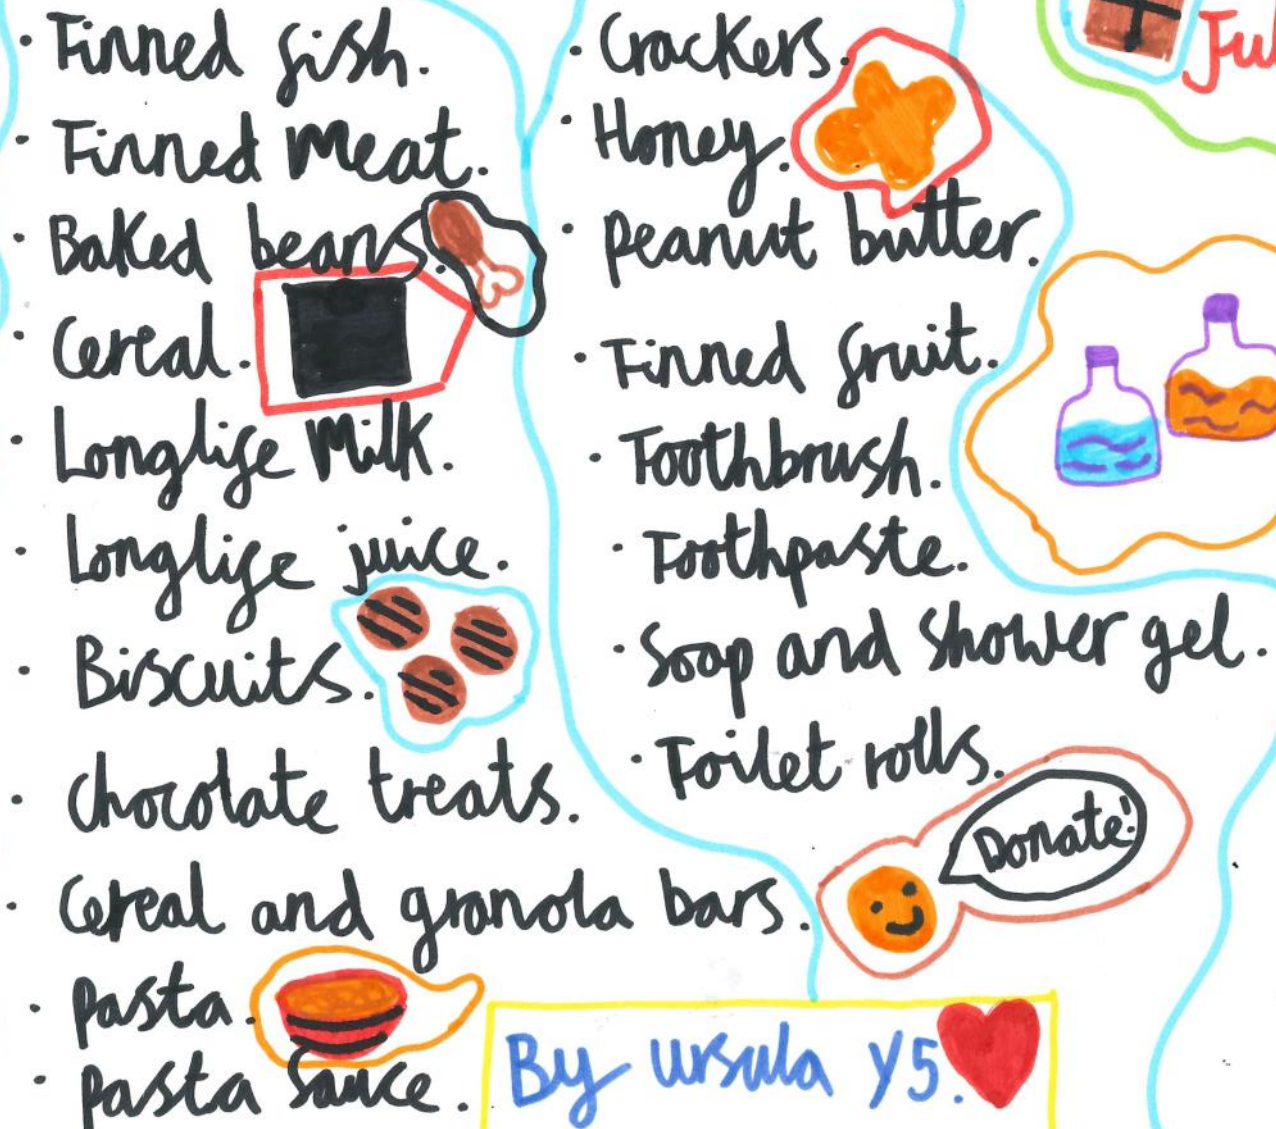 · Tinned fish.
· Tinned Meat.
· Baked beans.
· Cereal.
· Longlife Milk.
· Longlife juice.
· Biscuits.
· Chocolate treats.
· Cereal and granola bars.
· Pasta.
· Pasta Sauce.
· Crackers.
· Honey.
· Peanut butter.
· Tinned fruit.
· Toothbrush.
· Toothpaste.
· Soap and Shower gel.
· Toilet rolls.
Donate!
By Ursula Y5.